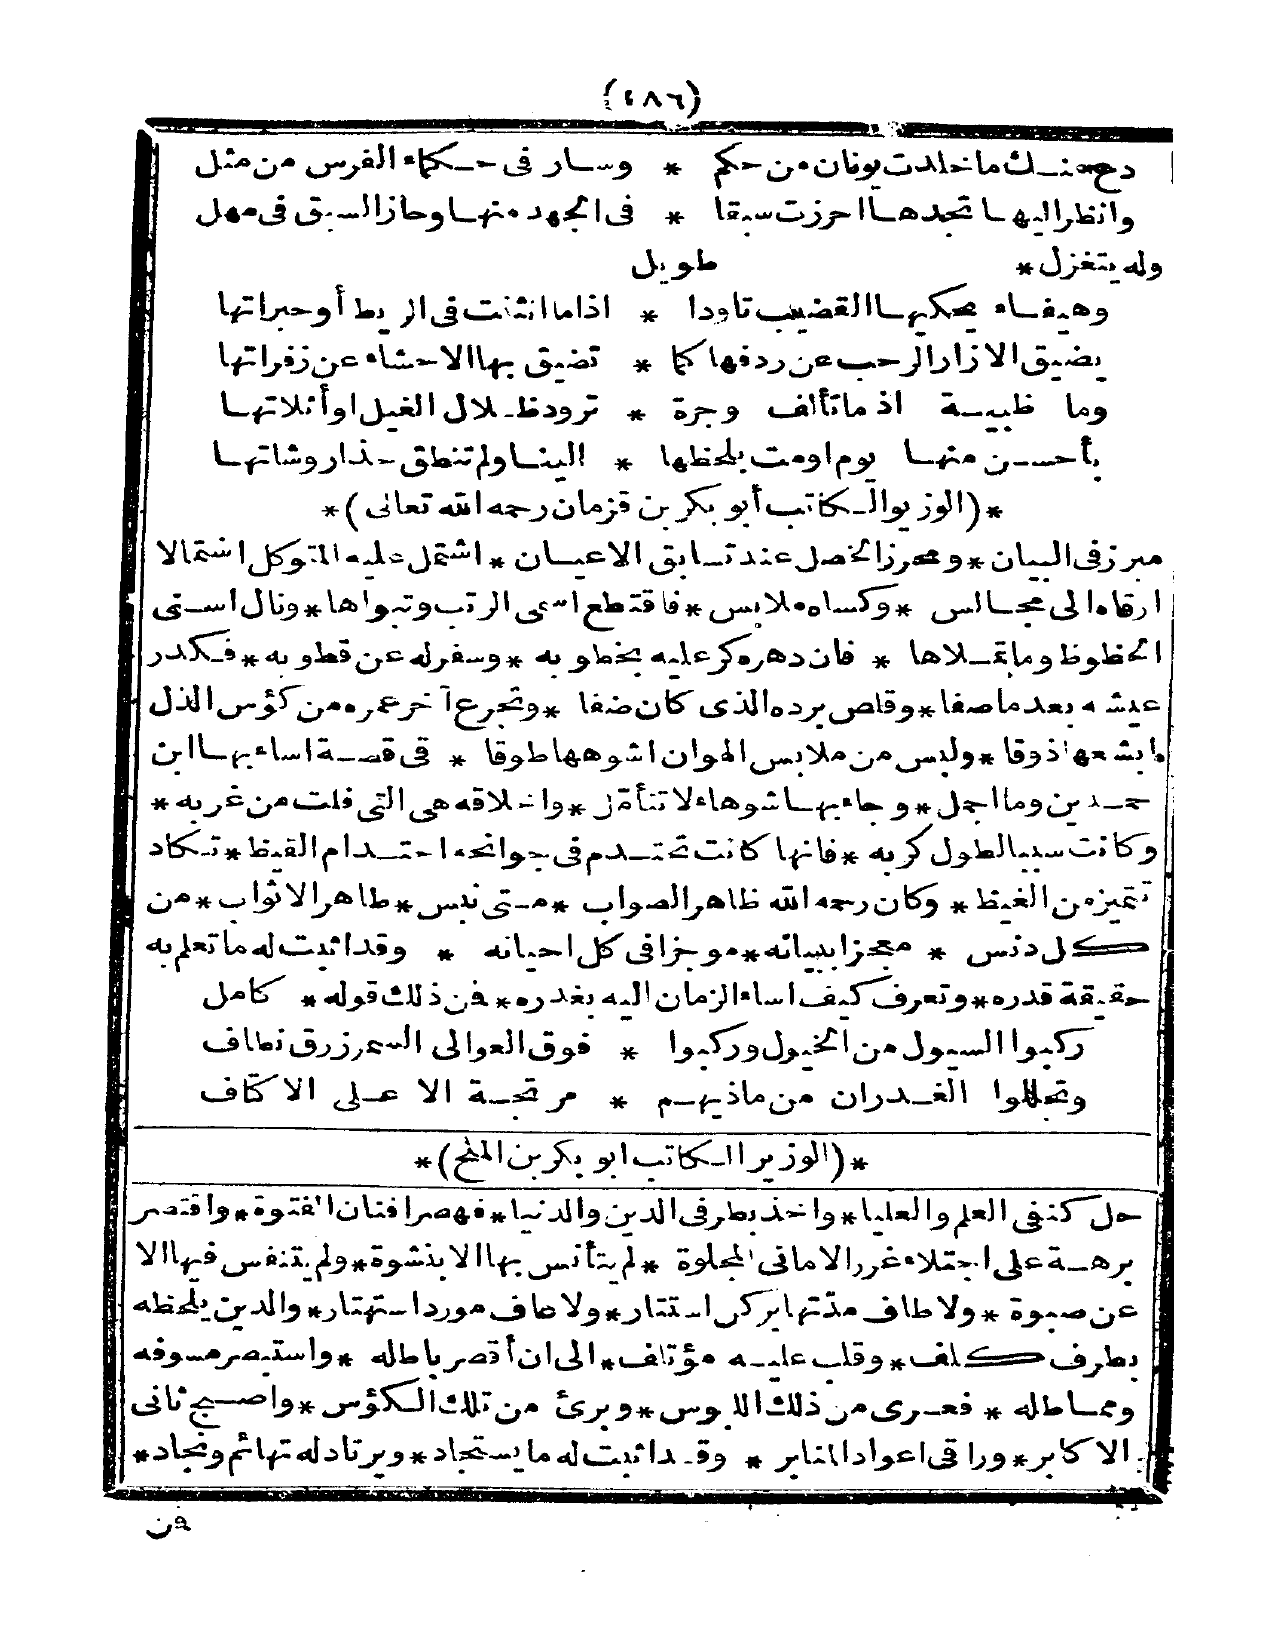 (٤٨٦)
دع عنك ما خلدت يونان من حكم * وسار فى حكماء الفرس من مثل
وانظر اليها تجدها احرزت سبقا * فى الجهد منها وحاز السبق فى مهل
وله يتغزل * طويل
وهيفاء يحكيها القضيب تاودا * اذا ما انثنت فى الريط أو حبراتها
يضيق الازار الرحب عن ردفها كما * تضيق بها الاحشاء عن زفراتها
وما ظبية اذ ما تألف وجرة * ترود ظلال الغيل او أثلاتها
بأحسن منها يوم اومت بلحظها * الينا ولم تنطق حذار وشاتها
*(الوزير الكاتب أبو بكر بن قزمان رحمه الله تعالى)*
مبرز فى البيان * ومحرز الخصل عند تسابق الاعيان * اشتمل عليه المتوكل اشتمالا
ارقاه الى مجالس * وكساه ملابس * فاقتطع اسمى الرتب وتبواها * ونال اسنى
الحظوظ وما تملاها * فان دهره كر عليه بخطوبه * وسفر له عن قطوبه * فكدر
عيشه بعد ما صفا * وقلص برده الذى كان ضفا * وتجرع آخر عمره من كؤس الذل
ما بشعها ذوقا * ولبس من ملابس الهوان اشوهها طوقا * فى قصة اساء بها ابن
حمدين وما اجمل * وجاء بها شوهاء لا تتأمل * واخلاقه هى التى فلت من غربه *
وكانت سببا لطول كربه * فانها كانت تحتدم فى جوانحه احتدام القيظ * تكاد
تميز من الغيظ * وكان رحمه الله ظاهر الصواب * متى نبس * طاهر الاثواب * من
كل دنس * معجزا ببيانه * موجزا فى كل احيانه * وقد اثبت له ما تعلم به
حقيقة قدره * وتعرف كيف اساء الزمان اليه بغدره * فمن ذلك قوله * كامل
ركبوا السيول من الخيول وركبوا * فوق العوالى السمر زرق نطاف
وتجللوا الغدران من ماذيهم * مرتجة الا على الاكتاف
*(الوزير الكاتب ابو بكر بن الملح)*
حل كنفى العلم والعليا * واخذ بطرفى الدين والدنيا * فهصر افنان الفتوة * واقتصر
برهة على اجتلاء غرر الامانى المجلوة * لم يتأنس بها الا بنشوة * ولم يتنفس فيها الا
عن صبوة * ولا طاف مدتها بركن استتار * ولا عاف مورد استهتار * والدين يلحظه
بطرف كلف * وقلب عليه مؤتلف * الى ان أقصر باطله * واستبصر مسوفه
ومماطله * فعرى من ذلك اللبوس * وبرئ من تلك الكؤس * واصبح ثانى
الاكابر * وراقى اعواد المنابر * وقد اثبت له ما يستجاد * ويرتاد له تهائم ونجاد *